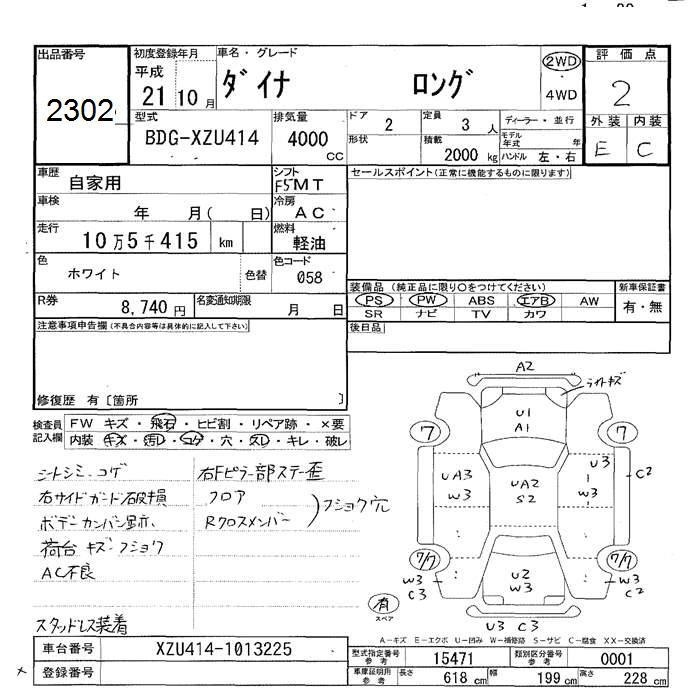 出品番号 初度登録年月 車名・グレード 2WD 評価点
2302 平成 21 10月 ダイナ ロング 4WD 2
型式 排気量 ドア 2 定員 3人 ディーラー・並行 外装 内装
BDG-XZU414 4000 CC 形状 積載 2000 kg モデル年式 年 E C
ハンドル 左・右
車歴 自家用 シフト F5MT セールスポイント(正常に機能するものに限ります)
車検 年 月( 日) 冷房 AC
走行 10万5千415 km 燃料 軽油
色 ホワイト 色替 色コード 058
装備品 (純正品に限り○をつけてください) 新車保証書
PS PW ABS エアB AW 有・無
SR ナビ TV カワ
R券 8,740円 名変通知期限 月 日
後日品
注意事項申告欄(不具合内容等は具体的に記入して下さい)
修復歴 有〔箇所 〕
検査員記入欄 FW キズ・飛石・ヒビ割・リペア跡・×要
内装 キズ・汚レ・コゲ・穴・スレ・キレ・破レ
シートシミ、コゲ 右Fピラー部ステー歪
右サイドガード破損 フロア
ボデーカンバン跡 Rクロスメンバー フショク穴
荷台 キズ・フショク
AC不良
スタッドレス装着
A2
ライトキズ
U1
A1
7 7
UA3
W3
UA2
S2
U3
W3
C2
7/7 7/7
W3
C3
U2
W3
W3
C2
有
スペア
U3 C3
A-キズ E-エクボ U-凹み W-補修跡 S-サビ C-腐食 XX-交換済
車台番号 XZU414-1013225
型式指定番号 参考 15471 類別区分番号 参考 0001
登録番号
車庫証明用 参考 長さ 618 cm 幅 199 cm 高さ 228 cm